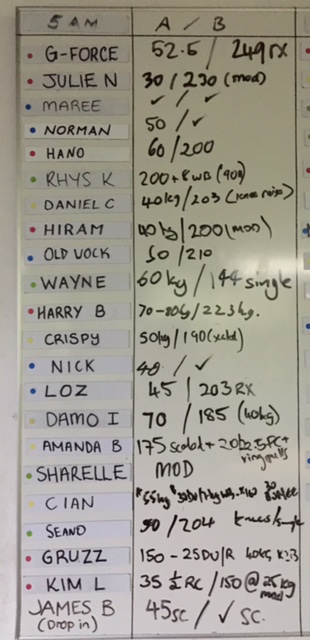 5 AM A / B
G-FORCE 52.5 / 249 rx
JULIE N 30 / 230 (mod)
MAREE ✓ / ✓
NORMAN 50 / ✓
HANO 60 / 200
RHYS K 200 + 8 WB (90g)
DANIEL C 40kg / 203 (knee raise)
HIRAM 40 kg / 200 (mod)
OLD VOCK 50 / 210
WAYNE 60kg / 144 single
HARRY B 70-80kg / 223kg.
CRISPY 50kg / 190 (scaled)
NICK 40 / ✓
LOZ 45 / 203 RX
DAMO I 70 / 185 (40kg)
AMANDA B 175 scaled +
ring pulls
SHARELLE MOD
CIAN
SEANO 50 / 204
GRUZZ 150 - 25DU/R 40kg
KIM L 35 ½ RC / 150 @ 25kg
mod
JAMES B 45 SC / ✓ SC.
(Drop in)